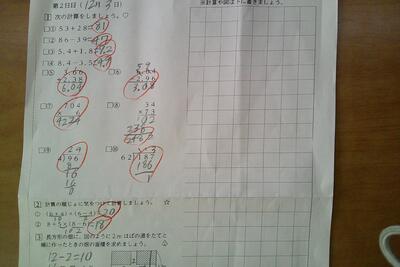 第2日目 (12月3日)
※計算や図は下に書きましょう。
1 次の計算をしましょう。♡
□① 53+28=81
□② 86-39=47
□③ 5.4+1.8=7.2
□④ 8.4-3.5=4.9
□⑤ 3.66
+2.38
6.04
□⑥
-2.96
3.08
□⑦ 704
× 6
4224
□⑧ 34
×73
102
□⑨ 24
4)96
8
16
16
0
□⑩
62)187
186
1
2 計算の順じょに気をつけて計算しましょう。☆
=20
② 8+5×(8-6)=18
3 長方形の畑に、図のように2mはばの道をたてと
横に作ったときの畑の面積を求めましょう。
12-2=10